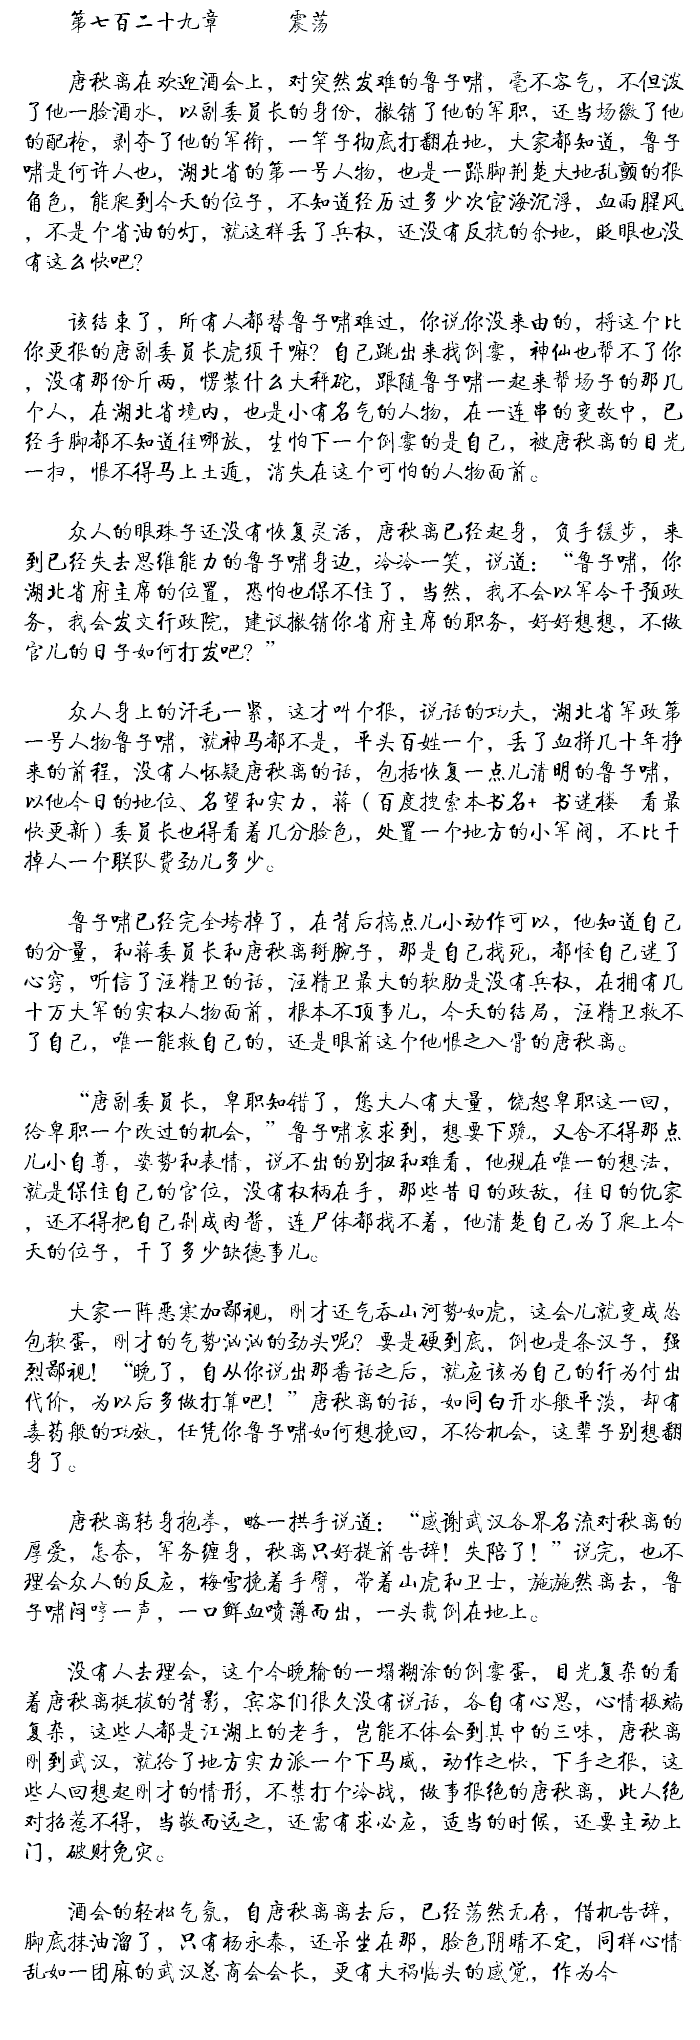 第七百二十九章 震荡
唐秋离在欢迎酒会上，对突然发难的鲁子啸，毫不客气，不但泼
了他一脸酒水，以副委员长的身份，撤销了他的军职，还当场缴了他
的配枪，剥夺了他的军衔，一竿子彻底打翻在地，大家都知道，鲁子
啸是何许人也，湖北省的第一号人物，也是一跺脚荆楚大地乱颤的狠
角色，能爬到今天的位子，不知道经历过多少次宦海沉浮，血雨腥风
，不是个省油的灯，就这样丢了兵权，还没有反抗的余地，眨眼也没
有这么快吧？
该结束了，所有人都替鲁子啸难过，你说你没来由的，捋这个比
你更狠的唐副委员长虎须干嘛？自己跳出来找倒霉，神仙也帮不了你
，没有那份斤两，愣装什么大秤砣，跟随鲁子啸一起来帮场子的那几
个人，在湖北省境内，也是小有名气的人物，在一连串的变故中，已
经手脚都不知道往哪放，生怕下一个倒霉的是自己，被唐秋离的目光
一扫，恨不得马上土遁，消失在这个可怕的人物面前。
众人的眼珠子还没有恢复灵活，唐秋离已经起身，负手缓步，来
到已经失去思维能力的鲁子啸身边，冷冷一笑，说道：“鲁子啸，你
湖北省府主席的位置，恐怕也保不住了，当然，我不会以军令干预政
务，我会发文行政院，建议撤销你省府主席的职务，好好想想，不做
官儿的日子如何打发吧？”
众人身上的汗毛一紧，这才叫个狠，说话的功夫，湖北省军政第
一号人物鲁子啸，就神马都不是，平头百姓一个，丢了血拼几十年挣
来的前程，没有人怀疑唐秋离的话，包括恢复一点儿清明的鲁子啸，
以他今日的地位、名望和实力，蒋（百度搜索本书名+ 书迷楼 看最
快更新）委员长也得看着几分脸色，处置一个地方的小军阀，不比干
掉人一个联队费劲儿多少。
鲁子啸已经完全垮掉了，在背后搞点儿小动作可以，他知道自己
的分量，和蒋委员长和唐秋离掰腕子，那是自己找死，都怪自己迷了
心窍，听信了汪精卫的话，汪精卫最大的软肋是没有兵权，在拥有几
十万大军的实权人物面前，根本不顶事儿，今天的结局，汪精卫救不
了自己，唯一能救自己的，还是眼前这个他恨之入骨的唐秋离。
“唐副委员长，卑职知错了，您大人有大量，饶恕卑职这一回，
给卑职一个改过的机会，”鲁子啸哀求到，想要下跪，又舍不得那点
儿小自尊，姿势和表情，说不出的别扭和难看，他现在唯一的想法，
就是保住自己的官位，没有权柄在手，那些昔日的政敌，往日的仇家
，还不得把自己剁成肉酱，连尸体都找不着，他清楚自己为了爬上今
天的位子，干了多少缺德事儿。
大家一阵恶寒加鄙视，刚才还气吞山河势如虎，这会儿就变成怂
包软蛋，刚才的气势汹汹的劲头呢？要是硬到底，倒也是条汉子，强
烈鄙视！“晚了，自从你说出那番话之后，就应该为自己的行为付出
代价，为以后多做打算吧！”唐秋离的话，如同白开水般平淡，却有
毒药般的功效，任凭你鲁子啸如何想挽回，不给机会，这辈子别想翻
身了。
唐秋离转身抱拳，略一拱手说道：“感谢武汉各界名流对秋离的
厚爱，怎奈，军务缠身，秋离只好提前告辞！失陪了！”说完，也不
理会众人的反应，梅雪挽着手臂，带着山虎和卫士，施施然离去，鲁
子啸闷哼一声，一口鲜血喷薄而出，一头栽倒在地上。
没有人去理会，这个今晚输的一塌糊涂的倒霉蛋，目光复杂的看
着唐秋离挺拔的背影，宾客们很久没有说话，各自有心思，心情极端
复杂，这些人都是江湖上的老手，岂能不体会到其中的三味，唐秋离
刚到武汉，就给了地方实力派一个下马威，动作之快，下手之狠，这
些人回想起刚才的情形，不禁打个冷战，做事狠绝的唐秋离，此人绝
对招惹不得，当敬而远之，还需有求必应，适当的时候，还要主动上
门，破财免灾。
酒会的轻松气氛，自唐秋离离去后，已经荡然无存，借机告辞，
脚底抹油溜了，只有杨永泰，还呆坐在那，脸色阴晴不定，同样心情
乱如一团麻的武汉总商会会长，更有大祸临头的感觉，作为今